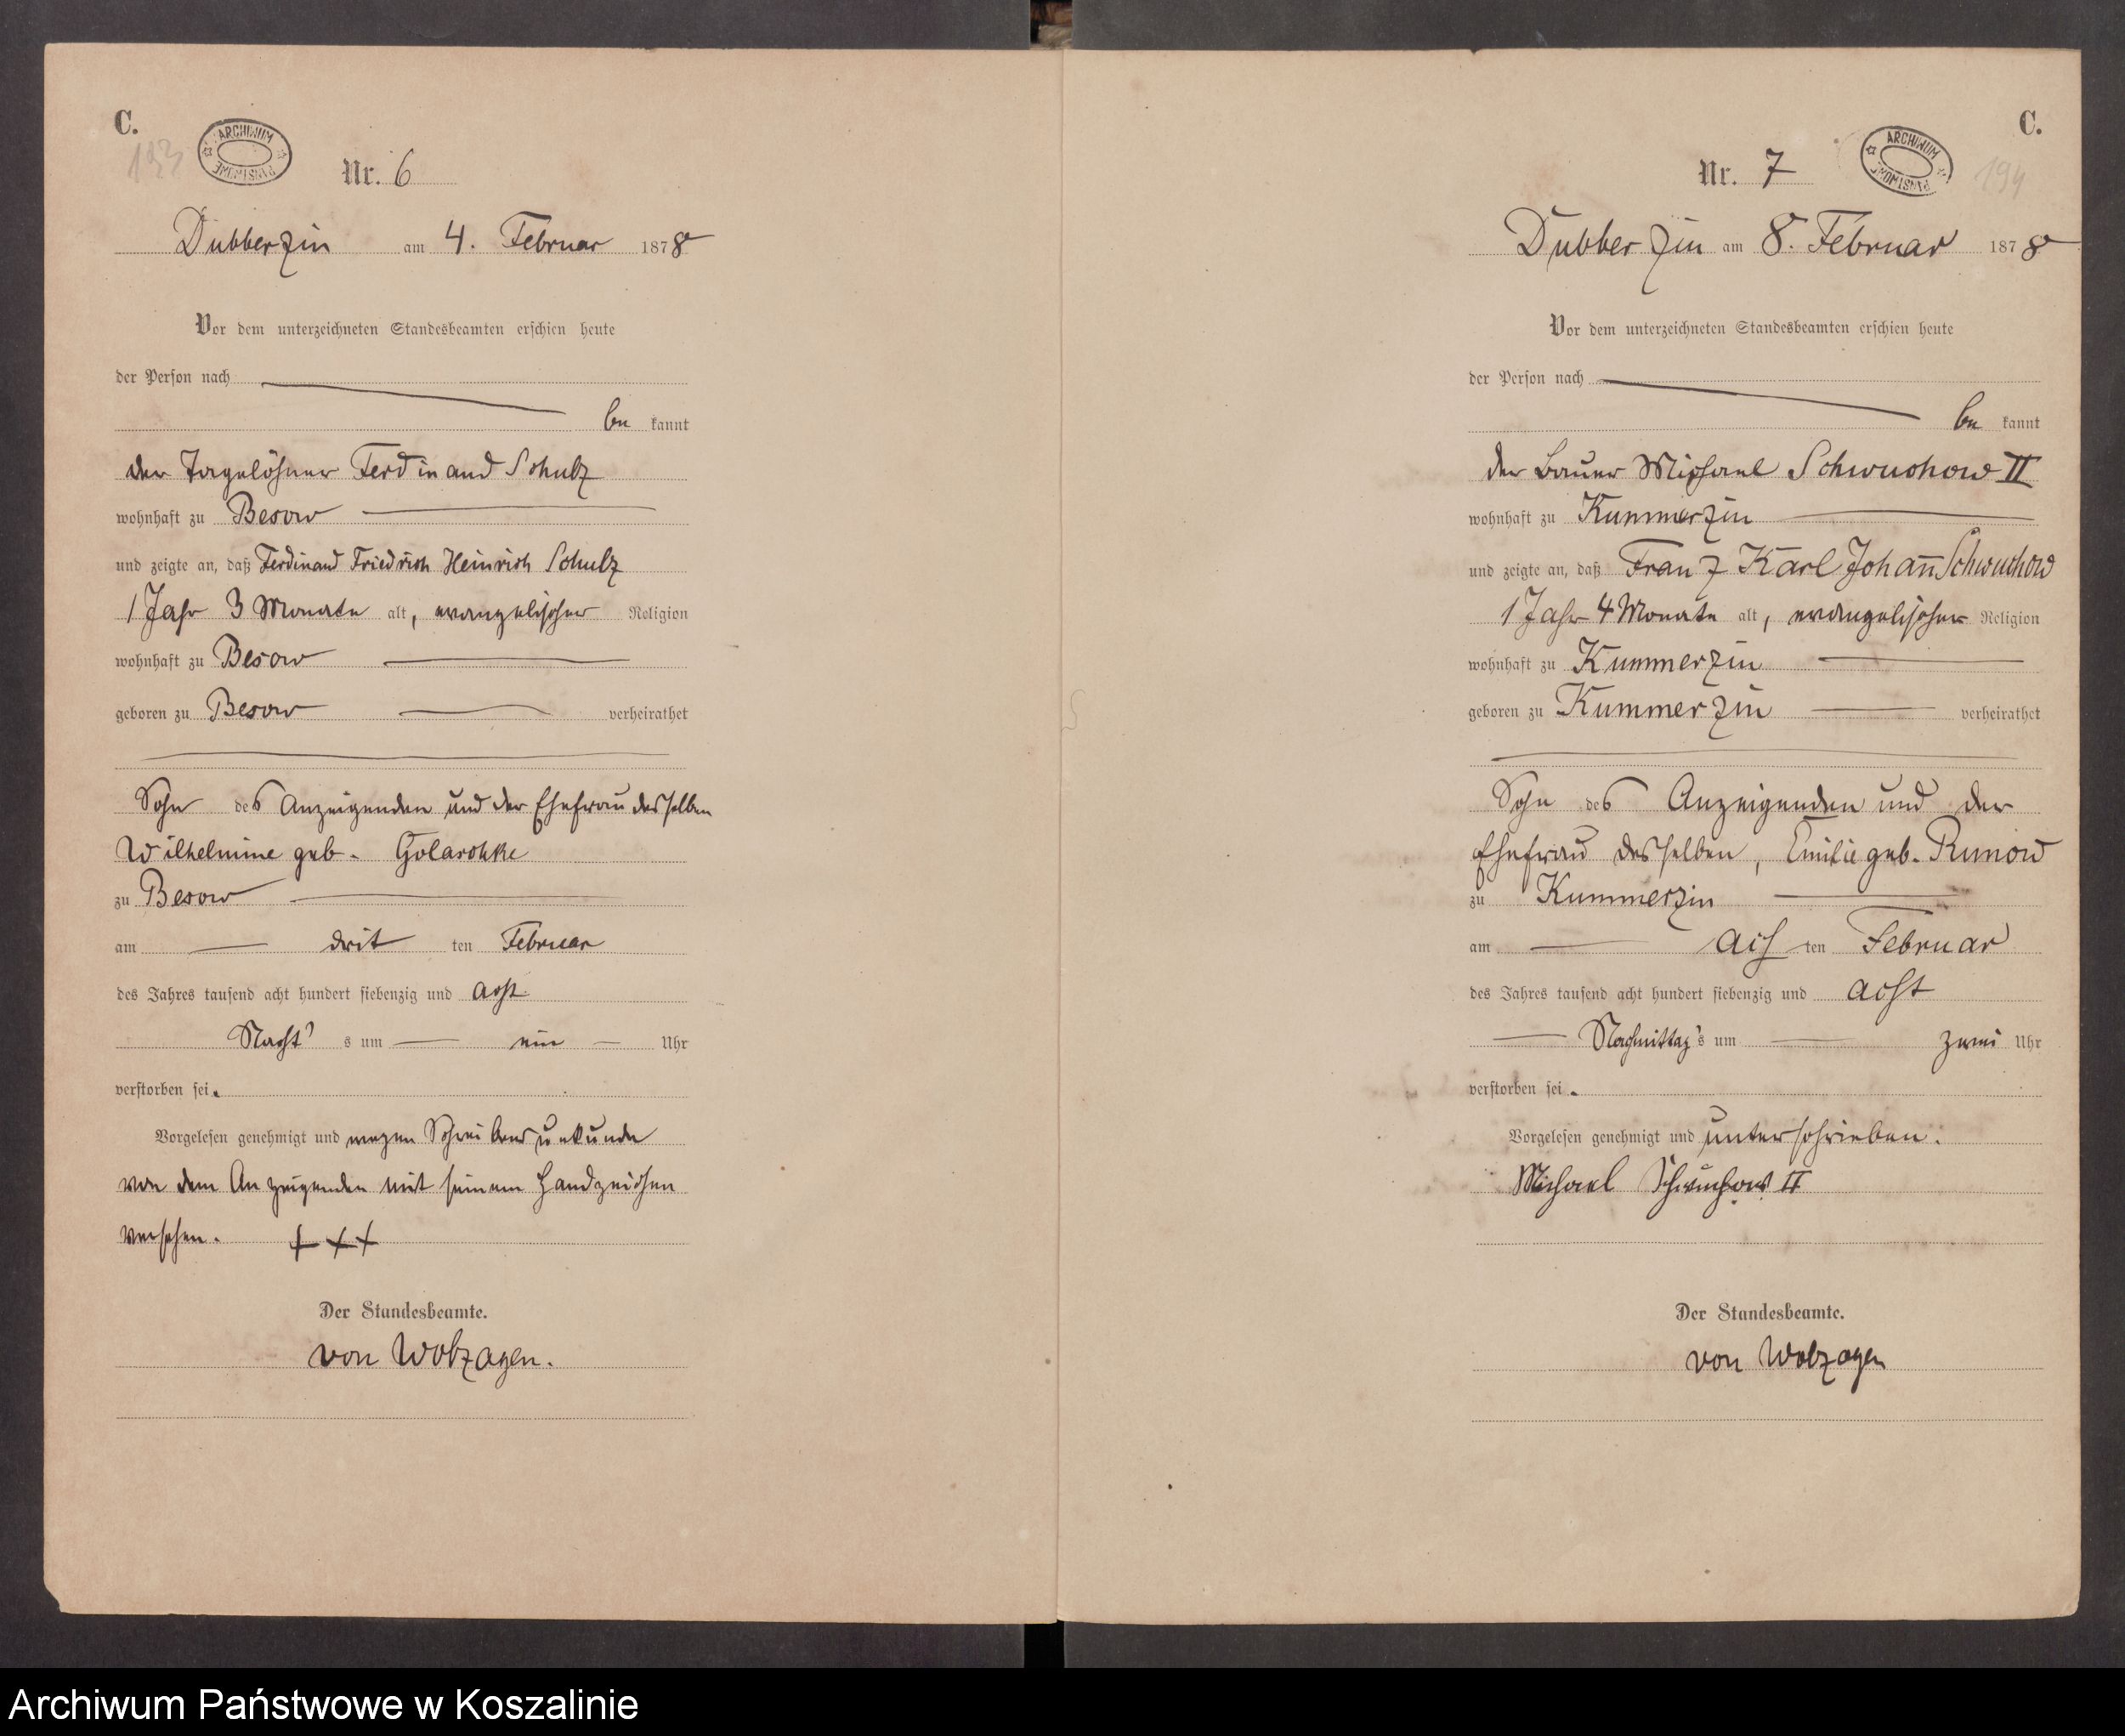 C.
193
ARCHIWUM
PAŃSTWOWE
Nr. 6
Dubberzin am 4. Februar 1878
Vor dem unterzeichneten Standesbeamten erschien heute
der Person nach
be kannt
der Tagelöhner Ferdinand Schulz
wohnhaft zu Besow
und zeigte an, daß Ferdinand Friedrich Heinrich Schulz
1 Jahr 3 Monate alt, evangelischer Religion
wohnhaft zu Besow
geboren zu Besow verheirathet
Sohn des Anzeigenden und der Ehefrau desselben
Wilhelmine geb. Golaschke
zu Besow
am drit ten Februar
des Jahres tausend acht hundert siebenzig und acht
Nacht's um ein Uhr
verstorben sei.
Vorgelesen genehmigt und wegen Schreibensunkunde
von dem Anzeigenden mit seinem Handzeichen
versehen. +++
Der Standesbeamte.
von Wobzagen.
C.
194
ARCHIWUM
PAŃSTWOWE
Nr. 7
Dubberzin am 8. Februar 1878
Vor dem unterzeichneten Standesbeamten erschien heute
der Person nach
be kannt
der Bauer Michael Schwuchow II
wohnhaft zu Kummerzin
und zeigte an, daß Franz Karl Johann̄ Schwuchow
1 Jahr 4 Monate alt, evangelischer Religion
wohnhaft zu Kummerzin
geboren zu Kummerzin verheirathet
Sohn des Anzeigenden und der
Ehefrau desselben, Emilie geb. Runow
zu Kummerzin
am ach ten Februar
des Jahres tausend acht hundert siebenzig und acht
Nachmittag's um zwei Uhr
verstorben sei.
Vorgelesen genehmigt und unterschrieben.
Michael Schwuchow II
Der Standesbeamte.
von Wobzagen
Archiwum Państwowe w Koszalinie